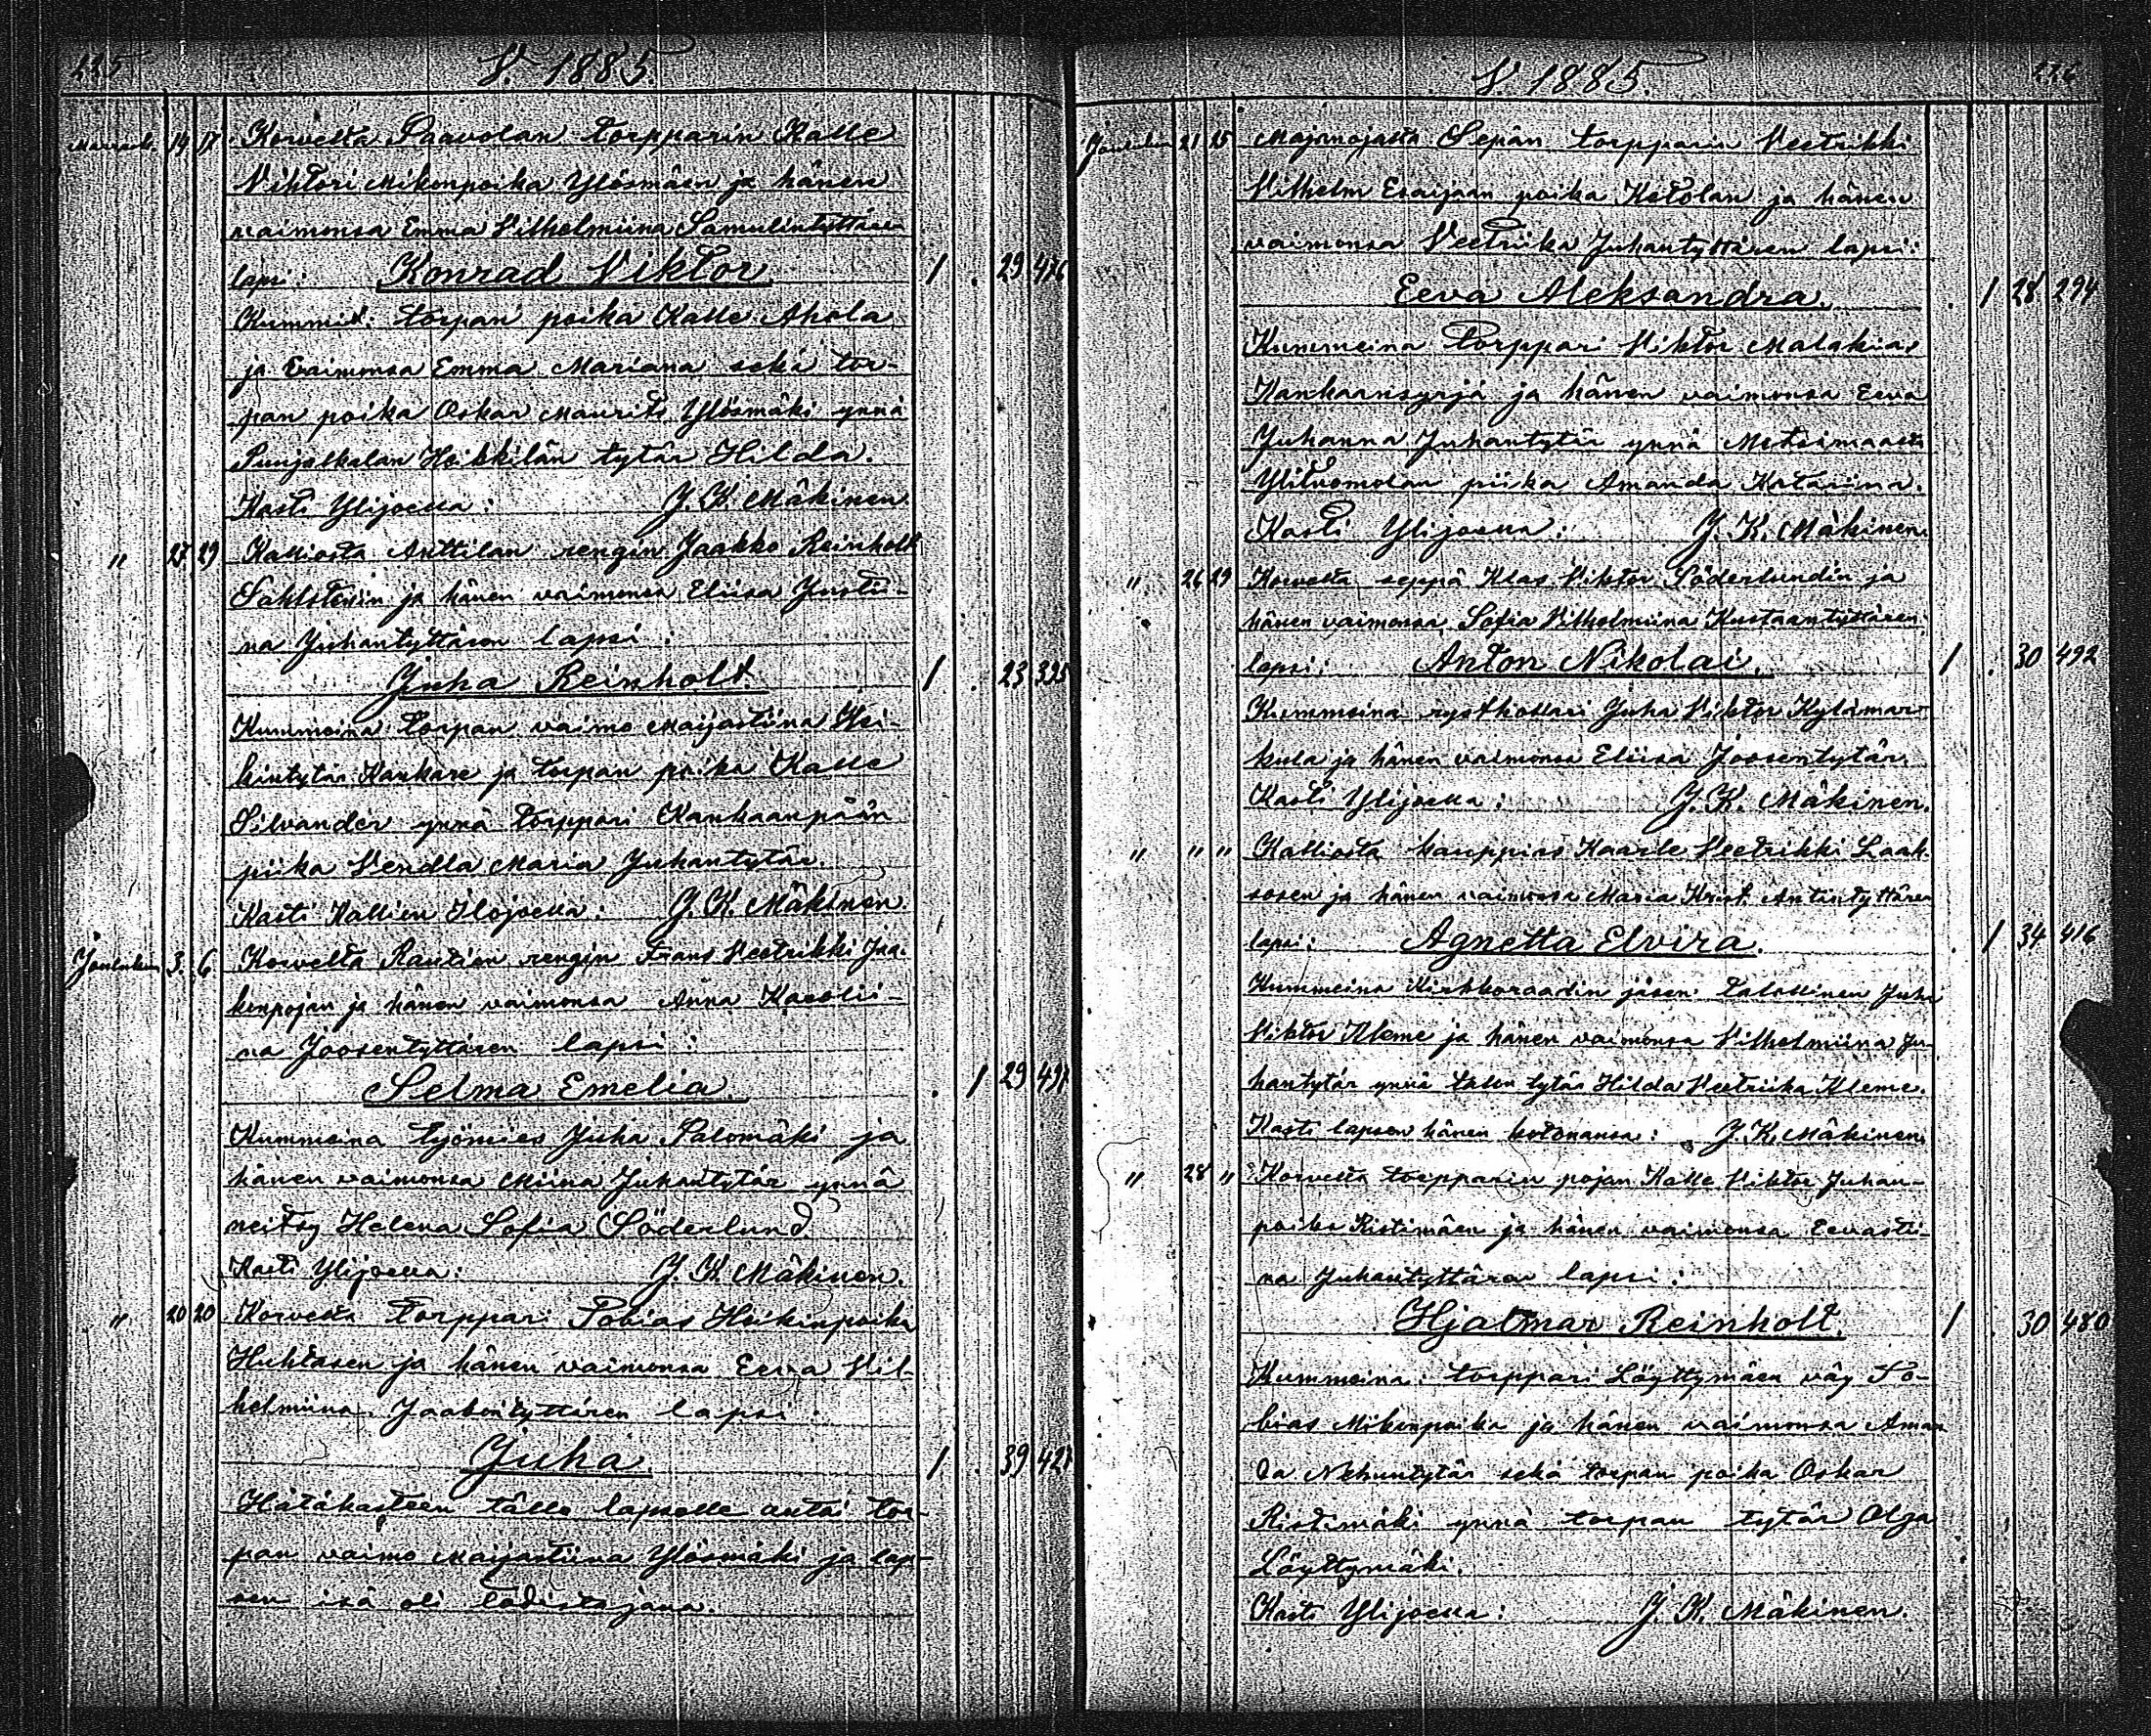 225
V. 1885
Marrask. 14 17 Korvelta Paavolan torpparin Kalle
Viktori Mikonpoika Ylösmäen ja hänen
vaimonsa Emma Vilhelmiina Samulintyttären
lapsi: Konrad Viktor 1 . 29 476
Kummid. torpan poika Kalle Ahola
ja vaimonsa Emma Mariana sekä tor-
pan poika Oskar Maurits Ylösmäki ynnä
Punjoskalan Heikkilän tytär Hilda.
Kasti Ylijoella: J. K. Mäkinen.
" 27 29 Kalliosta Anttilan rengin Jaakko Reinholt
Sahlstenin ja hänen vaimonsa Eliisa Justii-
na Juhantyttären lapsi:
Juha Reinholt. 1 . 23 335
Kummeina torpan vaimo Maijastiina Hei-
kintytär Kankare ja torpan poika Kalle
Silvander ynnä torppari Kankaanpään
piika Vendla Maria Juhantytär.
Kasti Kallion Ilojoella: J. K. Mäkinen.
Joulukuu 3. 6. Korvelta Raution rengin Frans Veetrikki Jaa-
konpojan ja hänen vaimonsa Anna Karolii-
na Joosentyttären lapsi:
Selma Emelia . 1 29 491
Kummeina työmies Juha Salomäki ja
hänen vaimonsa Miina Juhantytär ynnä
neitsy Helena Sofia Söderlund.
Kasti Ylijoella: J. K. Mäkinen.
" 20 20 Korvelta torppari Tobias Heikinpoika
Huhtasen ja hänen vaimonsa Eeva Vil-
helmiina Jaakontyttären lapsi:
Juha 1 . 39 421
Hätäkasteen tälle lapselle antoi tor-
pan vaimo Maijastiina Ylösmäki ja lap-
sen isä oli todistajana.
226
V. 1885.
Joulukuu 21 25 Majamojasta Sepän torpparin Veetrikki
Vilhelm Esaijan poika Ketolan ja hänen
vaimonsa Veetriika Juhantyttären lapsi:
Eeva Aleksandra. . 1 28 294
Kummeina torppari Viktor Malakias
Kankaansyrjä ja hänen vaimonsa Eeva
Juhanna Juhantytär ynnä Metsimaasta
Ylituomolan piika Amanda Katariina.
Kasti Ylijoella: J. K. Mäkinen.
" 26 29 Korvelta seppä Klas Viktor Söderlundin ja
hänen vaimonsa Sofia Vilhelmiina Kustaantyttären
lapsi: Anton Nikolai. 1 . 30 492
Kummeina rysthollari Juha Viktor Kylämar-
kula ja hänen vaimonsa Eliisa Joosentytär.
Kasti Ylijoella: J. K. Mäkinen.
" " " Kalliosta kauppias Kaarle Veetrikki Laak-
sosen ja hänen vaimonsa Maria Krist. Antintyttären
lapsi: Agnetta Elvira. . 1 34 416
Kummeina Kirkkoraadin jäsen talollinen Juha
Viktor Kleme ja hänen vaimonsa Vilhelmiina Ju-
hantytär ynnä talon tytär Hilda Veetriika Kleme.
Kasti lapsen hänen kotonansa: J. K. Mäkinen.
" 28 " Korvelta torpparin pojan Kalle Viktor Juhan-
poika Ristimäen ja hänen vaimonsa Eevasti-
na Juhantyttären lapsi:
Hjalmar Reinholt. 1 . 30 480
Kummeina: torppari Löyttymäen väy To-
bias Mikonpoika ja hänen vaimonsa Aman-
da Nehuntytär sekä torpan poika Oskar
Ristimäki ynnä torpan tytär Olga
Löyttymäki.
Kasti Ylijoella: J. K. Mäkinen.